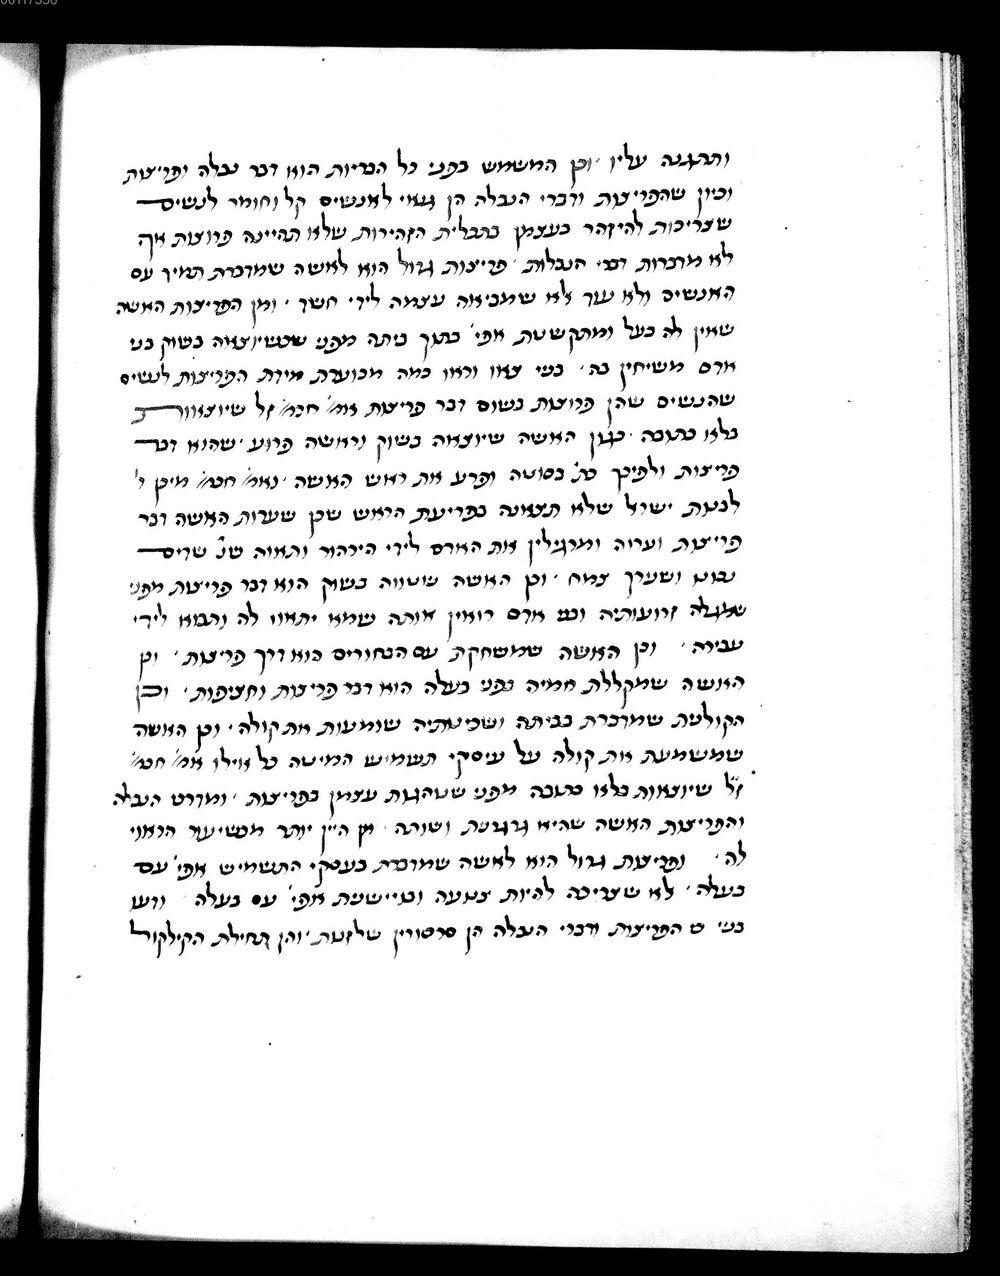 ותתגנה עליו · וכן המשמש בפני כל הבריות הוא דבר נבלה ופריצות
וכיון שהפריצות ודברי הנבלה הן גנאי לאנשים קל וחומר לנשים
שצריכות להיזהר בעצמן בתכלית הזהירות שלא תהיינה פרוצות אף
לא מדברות דברי הנבלות · פריצות גדול הוא לאשה שמדברת תמיד עם
האנשים ולא עוד אלא שמביאה עצמה לידי חשד · ומן הפריצות האשה
שאין לה בעל ומתקשטת אפי' בתוך ביתה מפני שכשיוצאה בשוק בני
אדם משיחין בה · בני צאו וראו כמה מכוערת מידת הפריצות לנשים
שהנשים שהן פרוצות בשום דבר פריצות אמ' חכמ' זל שיוצאות
בלא כתובה · כגון האשה שיוצאה בשוק וראשה פרוע · שהוא דבר
פריצות ולפיכך כת' בסוטה ופרע את ראש האשה · ואמ' חכמ' מיכן
לבנות ישראל שלא תצאנה בפריעת הראש שכן שערות האשה דבר
פריצות ועריה ומרגילין את האדם לידי הירהור ותאוה שנ' שדים
נכונו ושערך צמח · וכן האשה שטווה בשוק הוא דבר פריצות מפני
שמגלה זרועותיה ובני אדם רואין אותה שמא יתאוו לה ותבוא לידי
עבירה · וכן האשה שמשחקת עם הבחורים הוא דרך פריצות · וכן
האשה שמקללת חמיה בפני בעלה הוא דבר פריצות וחציפות · וכן
הקולנית שמדברת בביתה ושכינותיה שומעות את קולה · וכן האשה
שמשמעת את קולה על עיסקי תשמיש המיטה כל אילו אמ' חכמ'
ז"ל שיוצאות בלא כתובה מפני שנוהגות עצמן בפריצות · ומדרכי הנבלה
והפריצות האשה שהיא גרגרנית ושותה מן היין יותר מכשיעור הראוי
לה · ופריצות גדול הוא לאשה שמדברת בעסקי התשמיש אפי' עם
בעלה · לא שצריכה להיות צנועה וביישנית אפי' עם בעלה · ודעו
בני כי הפריצות ודברי הנבלה הן סרסורין של זנות · והן תחילת הקילקול